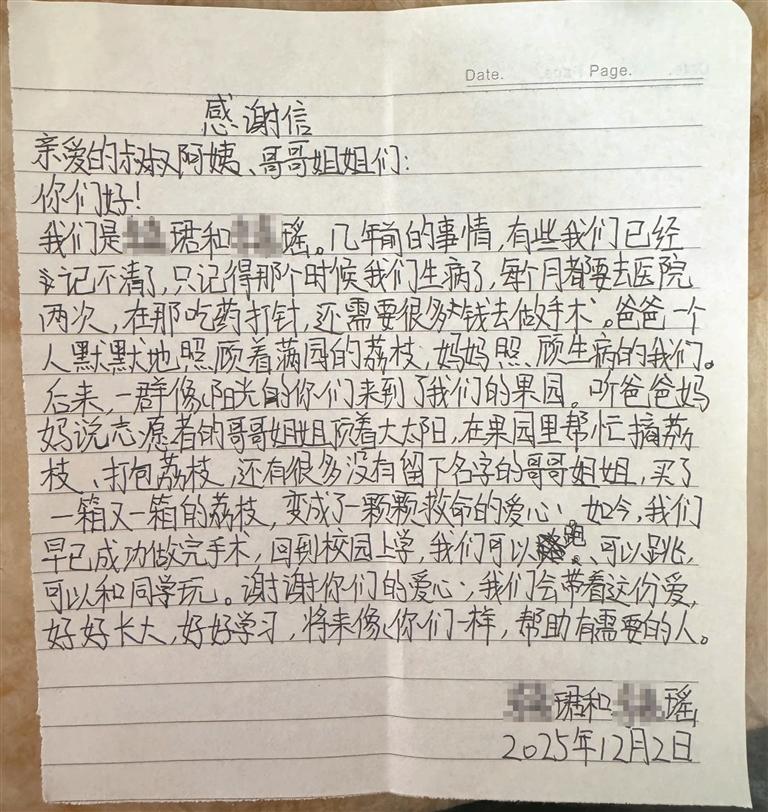 Date.
Page.
感谢信
亲爱的叔叔阿姨、哥哥姐姐们：
你们好！
我们是 珺和 瑶。几年前的事情，有些我们已经
记不清了，只记得那个时候我们生病了，每个月都要去医院
两次，在那吃药打针，还需要很多钱去做手术。爸爸一个
人默默地照顾着满园的荔枝，妈妈照顾生病的我们。
后来，一群像阳光的你们来到了我们的果园。听爸爸妈
妈说志愿者的哥哥姐姐顶着大太阳，在果园里帮忙摘荔
枝、打包荔枝，还有很多没有留下名字的哥哥姐姐，买了
一箱又一箱的荔枝，变成了一颗颗救命的爱心，如今，我们
早已成功做完手术，回到校园上学，我们可以跑、可以跳，
可以和同学玩。谢谢你们的爱心，我们会带着这份爱，
好好长大，好好学习，将来像你们一样，帮助有需要的人。
珺和 瑶
2025年12月2日